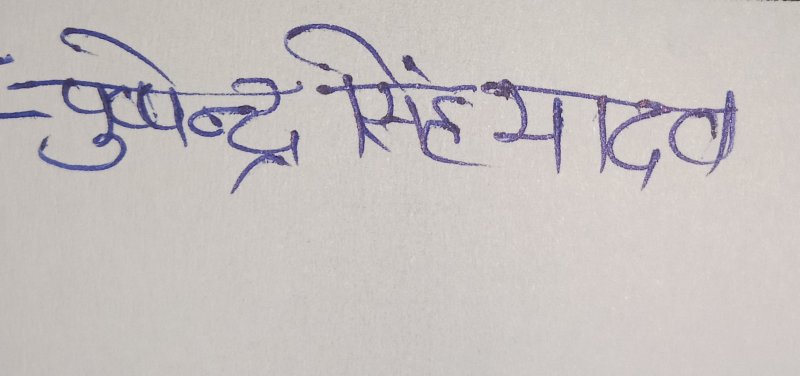 = पुष्पेन्द्र सिंह यादव